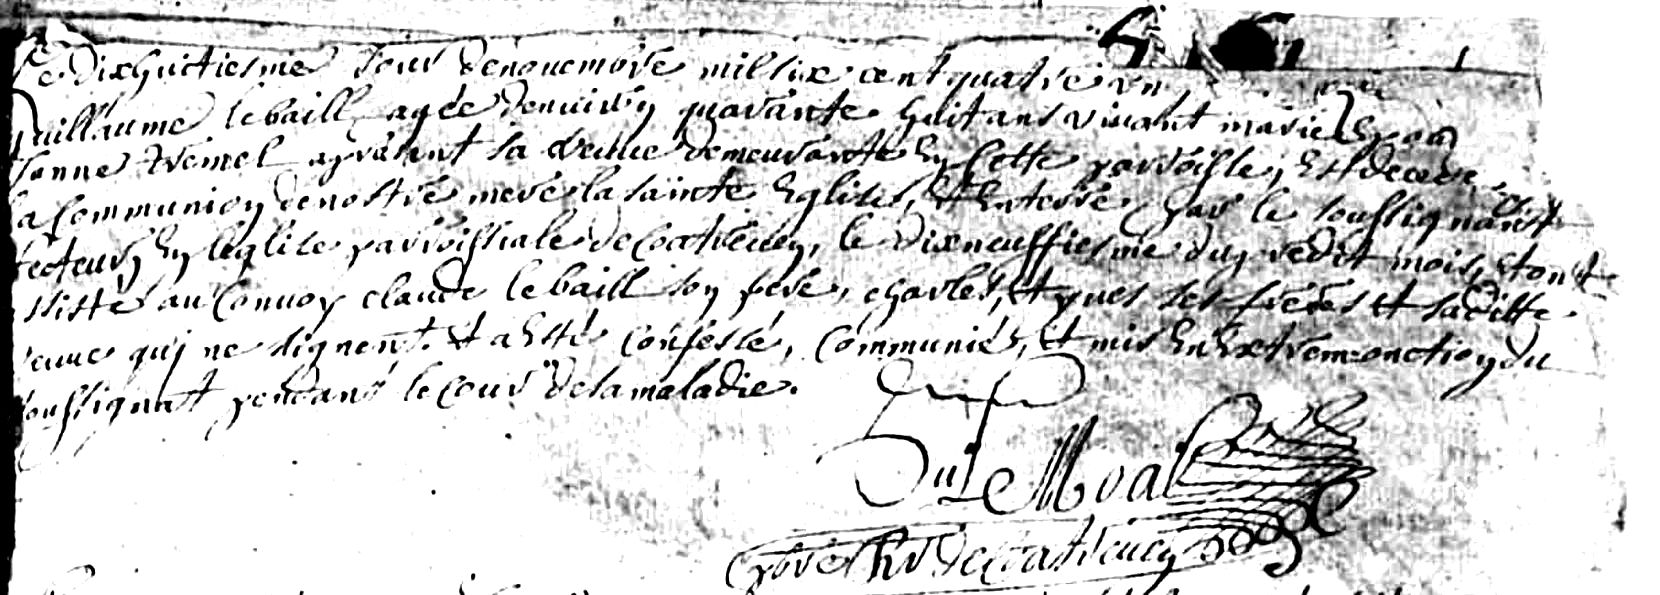 Ce dixhuictiesme Jour denouembre mil six cent quatre vn
guillaume lebaill agée denuiron quarante huit ans viuant marié
Janne tremel apresent sa veuue demeurante En Cette parroisse, Est decede
la Communion denostre mere la sainte Eglise, Et Enterré par le soussignant
recteur En leglise parroissiale de Coatreuen, le dixneuffiesme du predit mois, et ont
assisté au Conuoy claude lebaill son pere, charles, Et yues ses freres et saditte
veuue qui ne signent. Et a Esté Confessé, Communié, Et mis En Extremeonction du
soussignant pendant le Cour de la maladie.
Le Moal
pbre Rr de Coatreuen